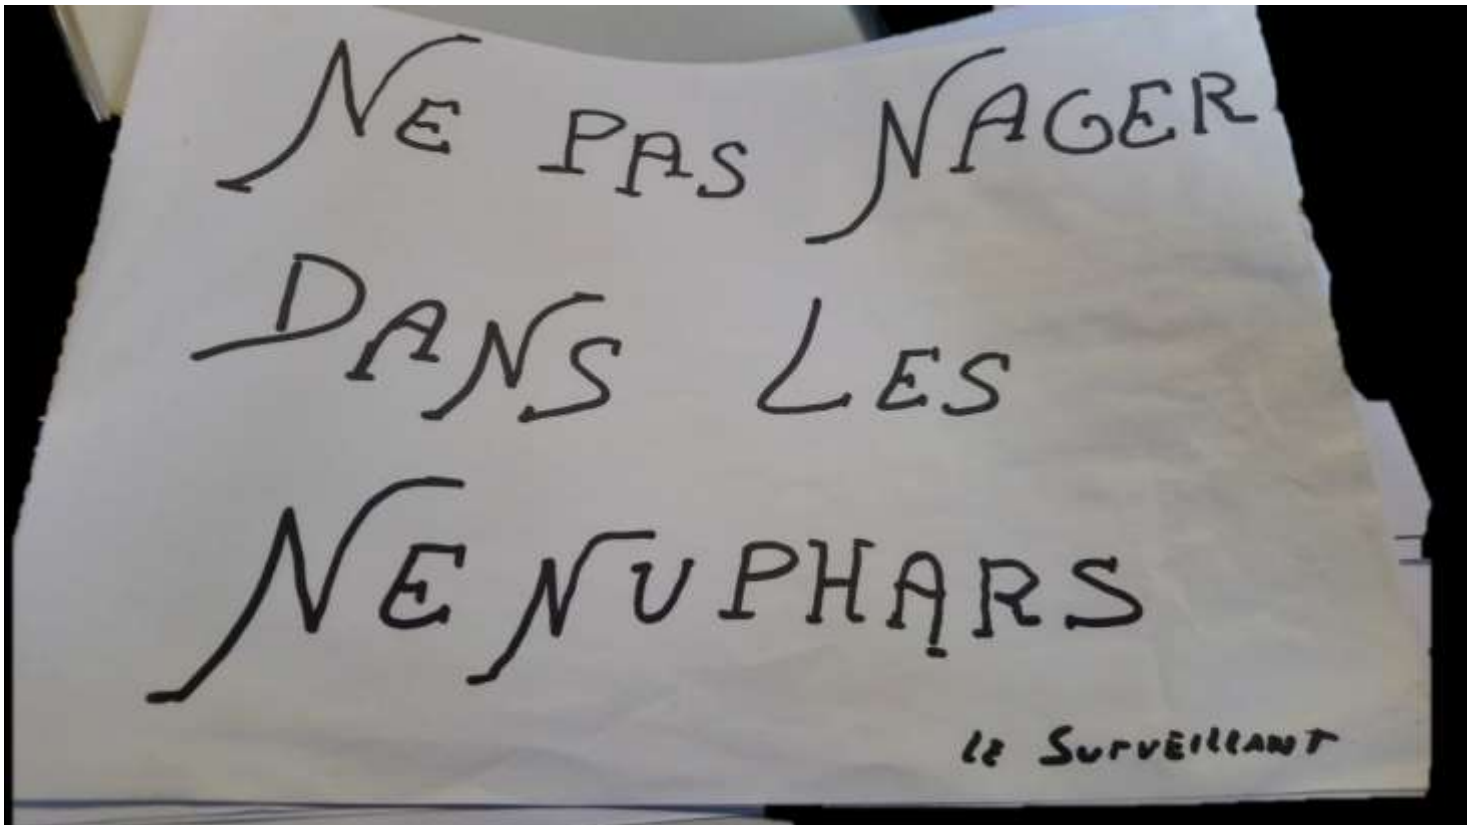 NE PAS NAGER
DANS LES
NENUPHARS
LE SURVEILLANT